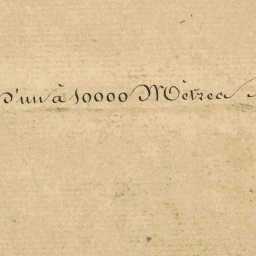 D'un à 10000 Mètres